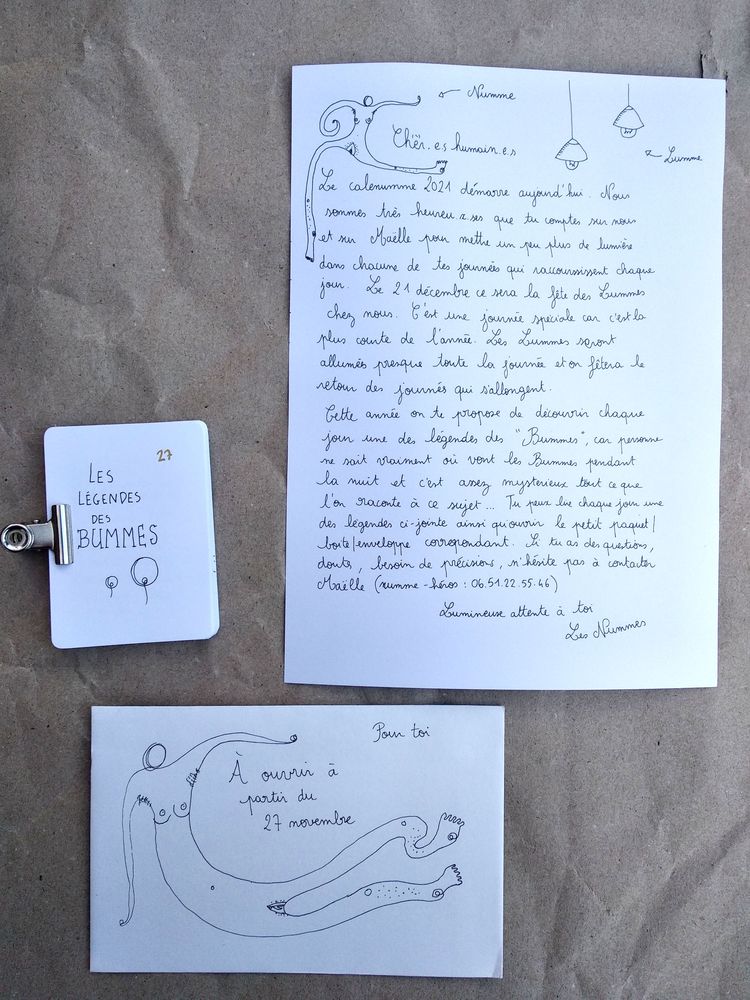 Numme
Chèr.es humain.e.s
Lumme
Le calenumme 2021 démarre aujourd'hui. Nous
sommes très heureu.x.ses que tu comptes sur nous
et sur Maëlle pour mettre un peu plus de lumière
dans chacune de tes journées qui raccourcissent chaque
jour. Le 21 décembre ce sera la fête des Lummes
chez nous. C'est une journée spéciale car c'est la
plus courte de l'année. Les Lummes seront
allumés presque toute la journée et on fêtera le
retour des journés qui s'allongent.
Cette année on te propose de découvrir chaque
jour une des légendes des "Bummes", car personne
ne sait vraiment où vont les Bummes pendant
la nuit et c'est assez mysterieux tout ce que
l'on raconte à ce sujet... Tu peux lire chaque jour une
des légendes ci-jointe ainsi qu'ouvrir le petit paquet/
boite/enveloppe correspondant. Si tu as des questions,
douts, besoin de précisions, n'hésite pas à contacter
Maëlle (numme-héros : 06.51.22.55.46)
Lumineuse attente à toi
Les Nummes
27
LES
LÉGENDES
DES
BUMMES
Pour toi
À ouvrir à
partir du
27 novembre